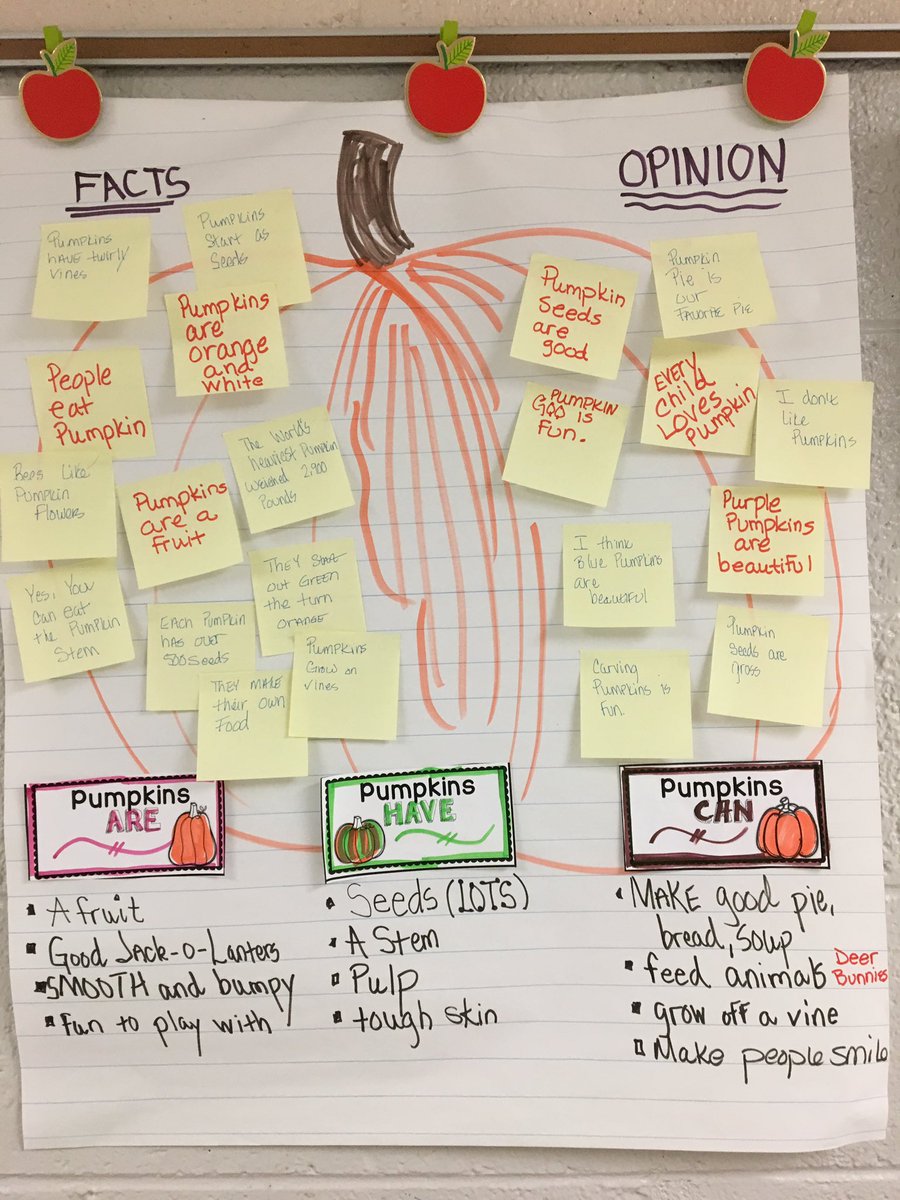 FACTS
OPINION
Pumpkins
HAVE twirly
Vines
Pumpkins
Start as
Seeds
Pumpkins
are
orange
and
white
People
eat
Pumpkin
The World's
heaviest Pumpkin
weighed 2,900
Pounds
Bees Like
Pumpkin
Flowers
Pumpkins
are a
fruit
They Start
out Green
the turn
orange
Yes, You
Can eat
the Pumpkin
Stem
EACH Pumpkin
HAS OUR
500 Seeds
Pumpkins
Grow on
Vines
THEY MAKE
their own
Food
Pumpkin
Seeds
are
good
Pumpkin
Pie is
our
Favorite Pie
EVERY
child
Loves
Pumpkin
PUMPKIN
GOO is
Fun.
I don't
like
Pumpkins
Purple
Pumpkins
are
beautiful
I think
Blue Pumpkins
are
beautiful
Pumpkin
Seeds are
gross
Carving
Pumpkins is
Fun.
Pumpkins
ARE
A fruit
Good Jack-o-Lanters
SMOOTH and bumpy
fun to play with
Pumpkins
HAVE
Seeds (lOTS)
A Stem
Pulp
tough skin
Pumpkins
CAN
MAKE good pie,
bread, soup
feed animals Deer
Bunnies
grow off a vine
Make people smile